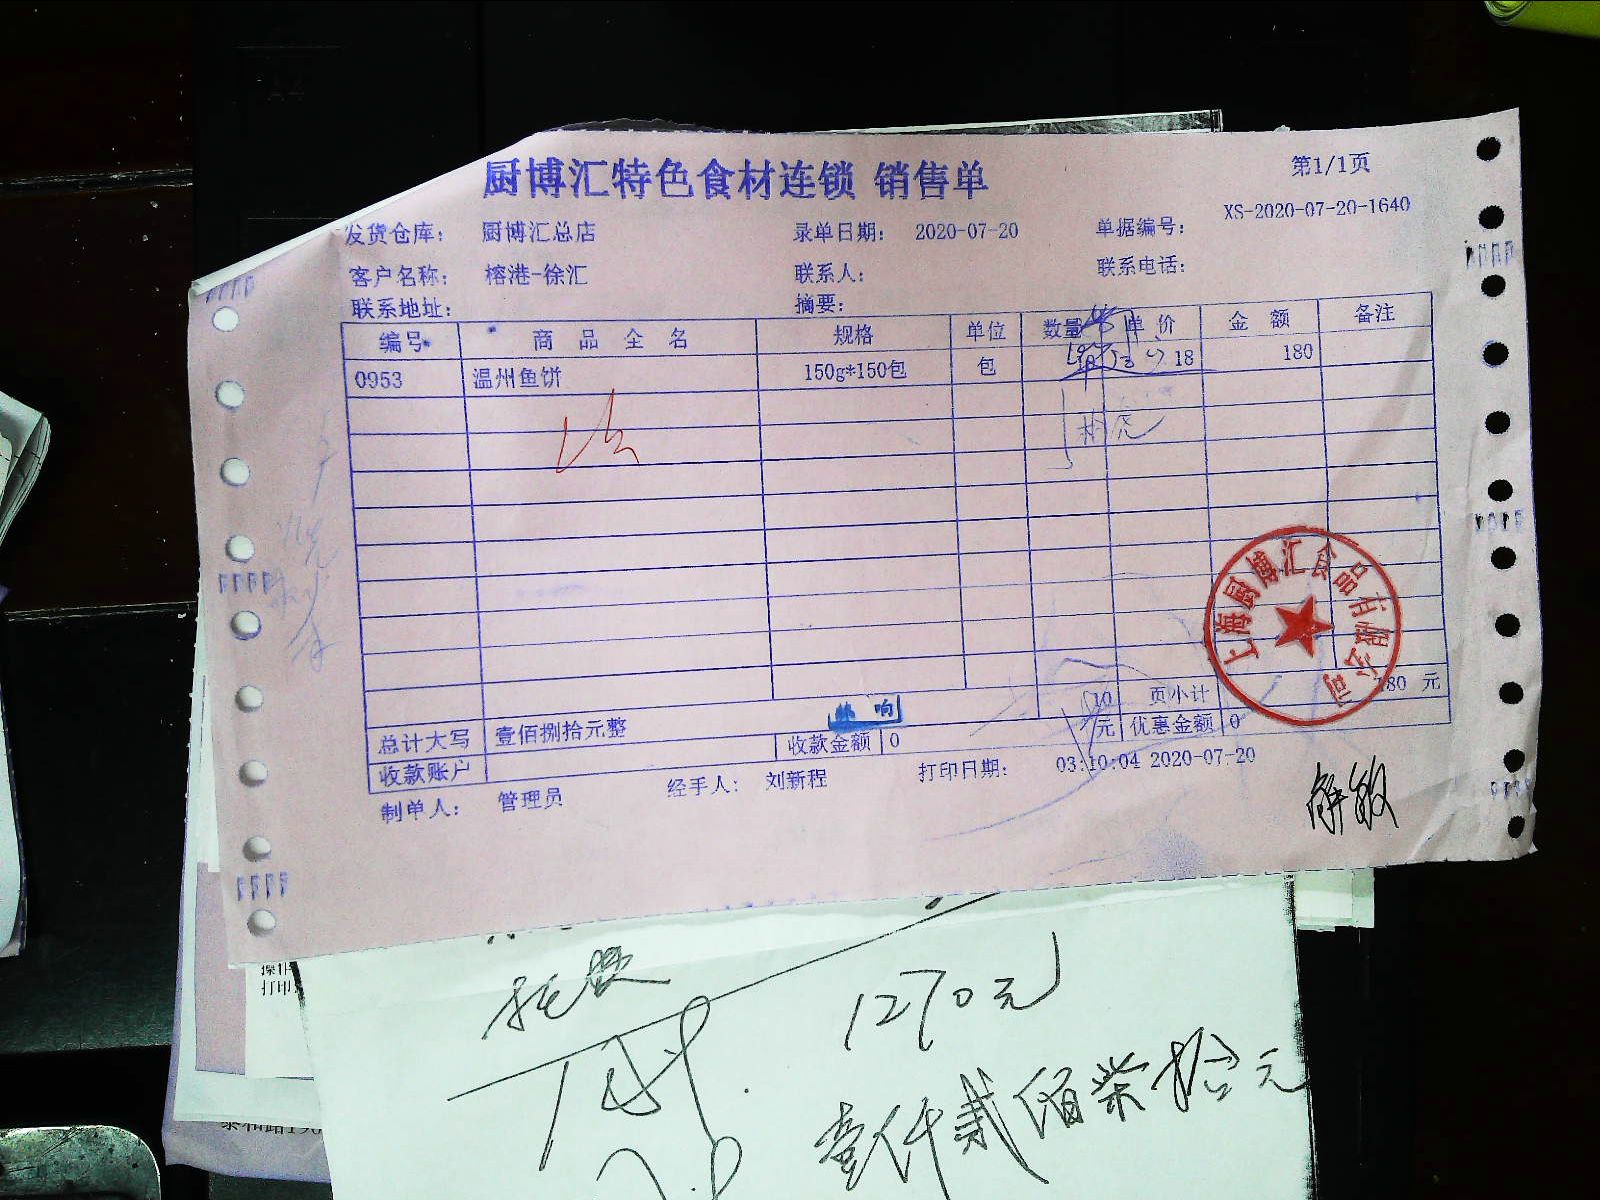 厨博汇特色食材连锁 销售单
第1/1页
发货仓库: 厨博汇总店 录单日期: 2020-07-20 单据编号: XS-2020-07-20-1640
客户名称: 榕港-徐汇 联系人: 联系电话:
联系地址: 摘要:
编号 商品全名 规格 单位 数量 单价 金额 备注
0953 温州鱼饼 150g*150包 包 18 180
10 页小计 180 元
总计大写 壹佰捌拾元整 收款金额 0 元 优惠金额 0
收款账户
制单人: 管理员 经手人: 刘新程 打印日期: 03:10:04 2020-07-20
上海厨博汇食品有限公司
操作
打印
1270元
壹仟贰佰柒拾元